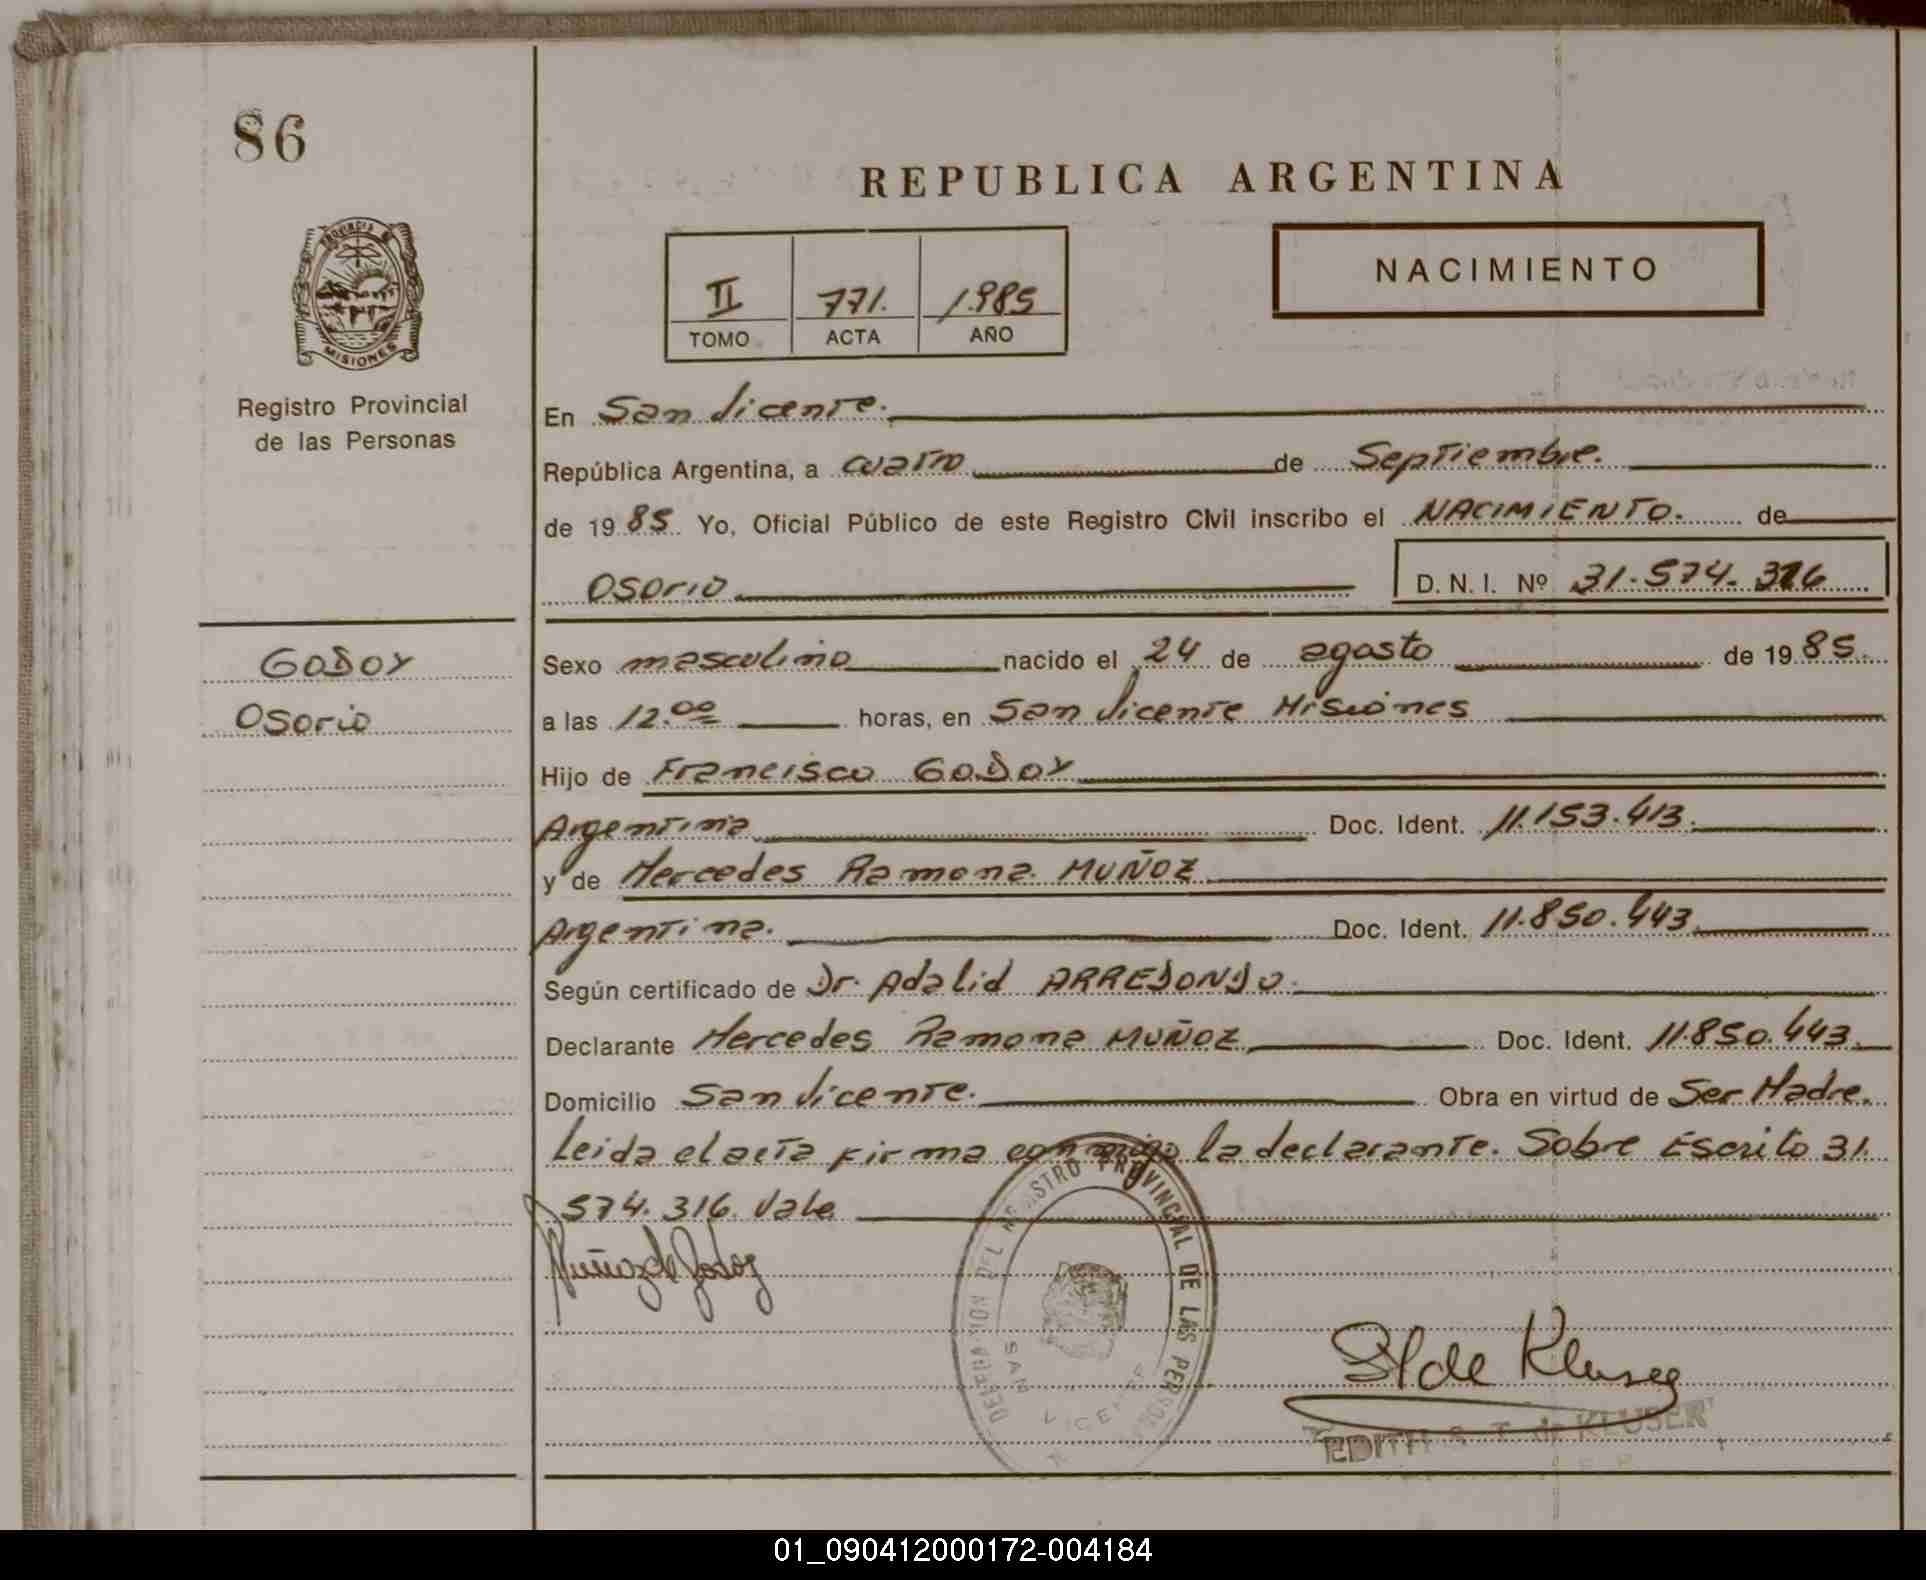 86
REPUBLICA ARGENTINA
PROVINCIA DE
MISIONES
Registro Provincial
de las Personas
II 771. 1.985
TOMO ACTA AÑO
NACIMIENTO
En San Vicente.
República Argentina, a cuatro de Septiembre.
de 1985 Yo, Oficial Público de este Registro Civil inscribo el NACIMIENTO. de
Osorio D. N. I. Nº 31.574.316
GODOY
Osorio
Sexo masculino nacido el 24 de agosto de 1985.
a las 12.00 horas, en San Vicente Misiones
Hijo de Francisco GODOY
Argentina Doc. Ident. 11.153.413.
y de Mercedes Ramona MUÑOZ
Argentina. Doc. Ident. 11.850.443.
Según certificado de Dr. Adalid ARREDONDO.
Declarante Mercedes Ramona MUÑOZ Doc. Ident. 11.850.443.
Domicilio San Vicente. Obra en virtud de Ser Madre.
Leida el acta firma conmigo la declarante. Sobre Escrito 31.
574.316. Vale
Muñoz de Godoy
DELEGACION DEL REGISTRO PROVINCIAL DE LAS PERSONAS
SAN VICENTE
de Kluser
EDITH S. T. de KLUSER
01_090412000172-004184